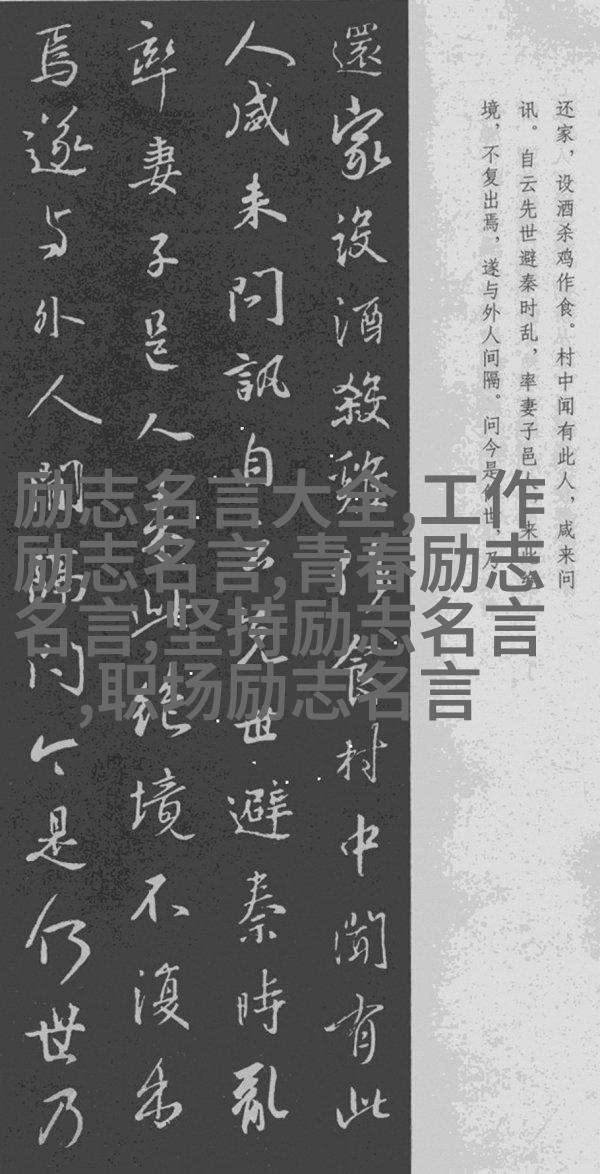 还家，设酒杀鸡作食。村中闻有此人，咸来问
讯。自云先世避秦时乱，率妻子邑来此绝
境，不复出焉，遂与外人间隔。问今是世，乃
還家設酒殺雞作食村中聞有此
人咸来問訊自云先世避秦時亂
率妻子邑人来此绝境不復出
焉遂与外人間隔问今是何世乃
励志名言大全,工作
励志名言,青春励志
名言,坚持励志名言
,职场励志名言